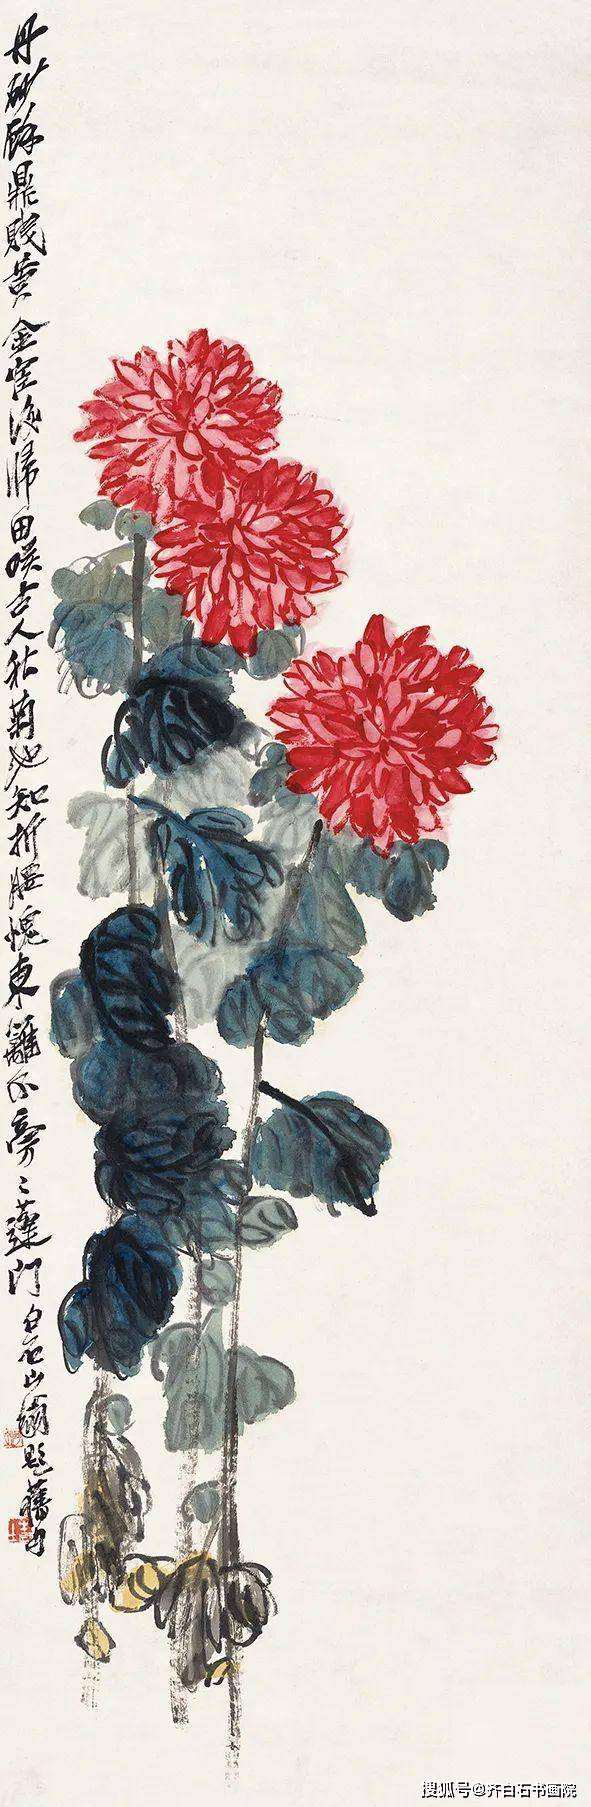 丹砂鼎賤黃金宦海歸田古人秋菊也知折腰愧東籬不旁〻蓬門白石山翁題舊句
搜狐号@齐白石书画院